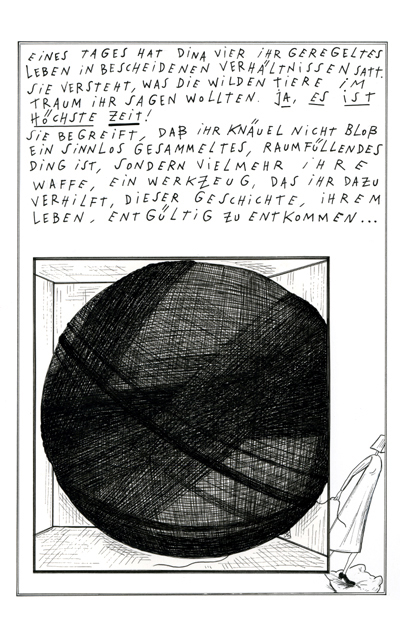 EINES TAGES HAT DINA VIER IHR GEREGELTES
LEBEN IN BESCHEIDENEN VERHÄLTNISSEN SATT.
SIE VERSTEHT, WAS DIE WILDEN TIERE IM
TRAUM IHR SAGEN WOLLTEN. JA, ES IST
HÖCHSTE ZEIT!
SIE BEGREIFT, DAß IHR KNÄUEL NICHT BLOß
EIN SINNLOS GESAMMELTES, RAUMFÜLLENDES
DING IST, SONDERN VIELMEHR IHRE
WAFFE, EIN WERKZEUG, DAS IHR DAZU
VERHILFT, DIESER GESCHICHTE, IHREM
LEBEN, ENTGÜLTIG ZU ENTKOMMEN...